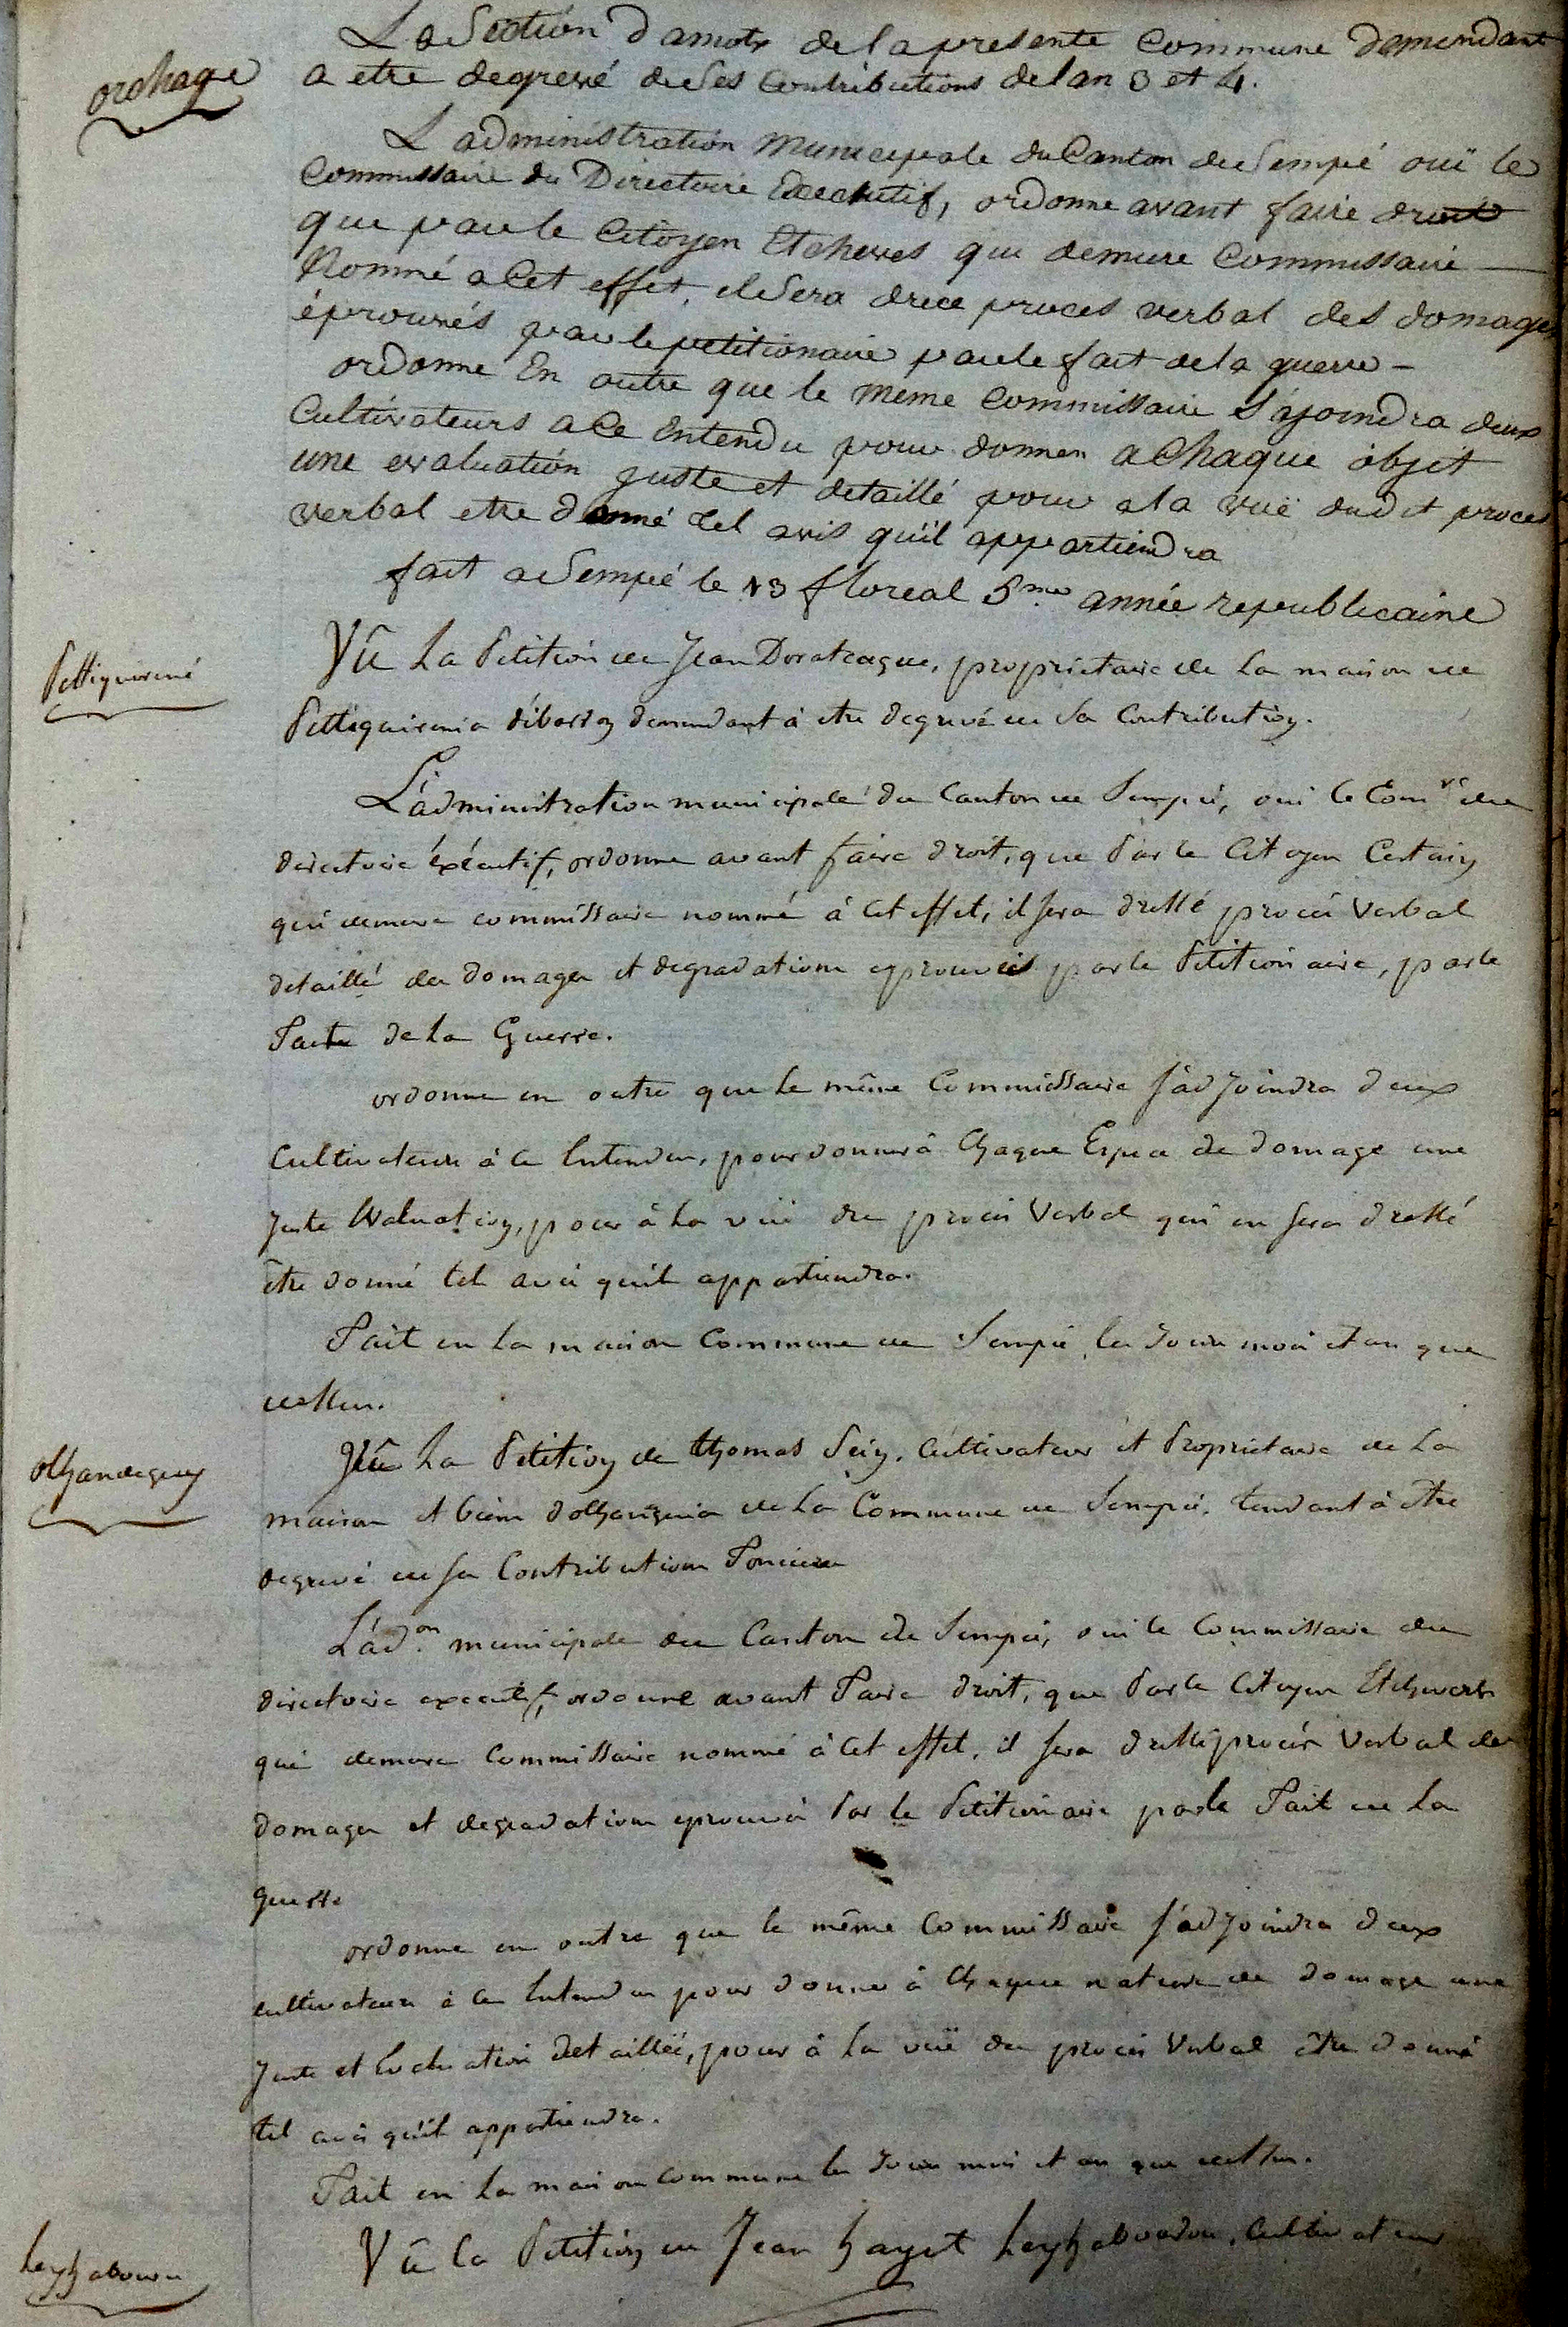 La Section d amotz de la presente Commune demendant
orchage
a etre degrevé de Ses Contributions de l an 3 et 4.
L administration Municepale du Canton de Sempé ouï le
Commissaire du Directoire Executif, ordonne avant faire droit
que par le Citoyen Etcheves qui demure Commissaire
Nommé a Cet effet, il Sera drece proces verbal des domages
éprouvés par le petitionaire par le fait de la guerre -
ordonne En outre que le meme Commissaire S'ajoindra deux
Cultivateurs a Ce Entendu pour donner a Chaque objet
une evaluation juste et detaillé pour a la vuë dudit proces
verbal etre donné tel avis qu'il appartiendra
fait a Sempé le 13 floreal 5.me année republicaine
Vû La Petition de Jean Doratcague, proprietaire de La maison de
demandant à etre degrevé de Sa Contribution.
L'administration municipale du Canton de Sempé, oui le Com.re du
directoire éxécutif, ordonne avant faire droit, que Par le Citoyen Certain
qui demure commissaire nommé à Cet effet, il Sera dressé procés Verbal
detaillé des domages et degradations eprouvés par le Petitionaire, par le
Faite de La Guerre.
ordonne en outre que Le même Commissaire S'adjoindra deux
Cultivateurs à Ce Entendus, pour donner à Chaque Espece de domage une
Juste Evaluation, pour à La vuë du procés Verbal qui en Sera dressé
être donné tel avis quil appartiendra.
Fait en La maison Commune de Sempé les Jour mois et an que
dessus.
Vû La Petition de thomas Cultivateur et Proprietaire de La
olhandeguy
maison et biens de La Commune de Sempé, tendant à être
degrevé de Sa Contribution Fonciere
L'ad.on municipale du Canton de Sempé, oui le Commissaire du
directoire executif, ordonne avant Faire droit, que Par le Citoyen Etcheverts
qui demure Commissaire nommé à Cet effet, il Sera dressé procés Verbal des
domages et degradations eprouvés Par le Petitionaire par le Fait de La
guerre
ordonne en outre que le même Commissaire S'adjoindra deux
cultivateurs à Ce Entendus pour donner à Chaque nature de domage une
Juste et Evaluation detaillée, pour à La vuë du procés Verbal être donné
tel avis qu'il appartiendra.
Fait en La maison commune les Jour mois et an que dessus.
Vû La Petition de Jean hayet Cultivateur